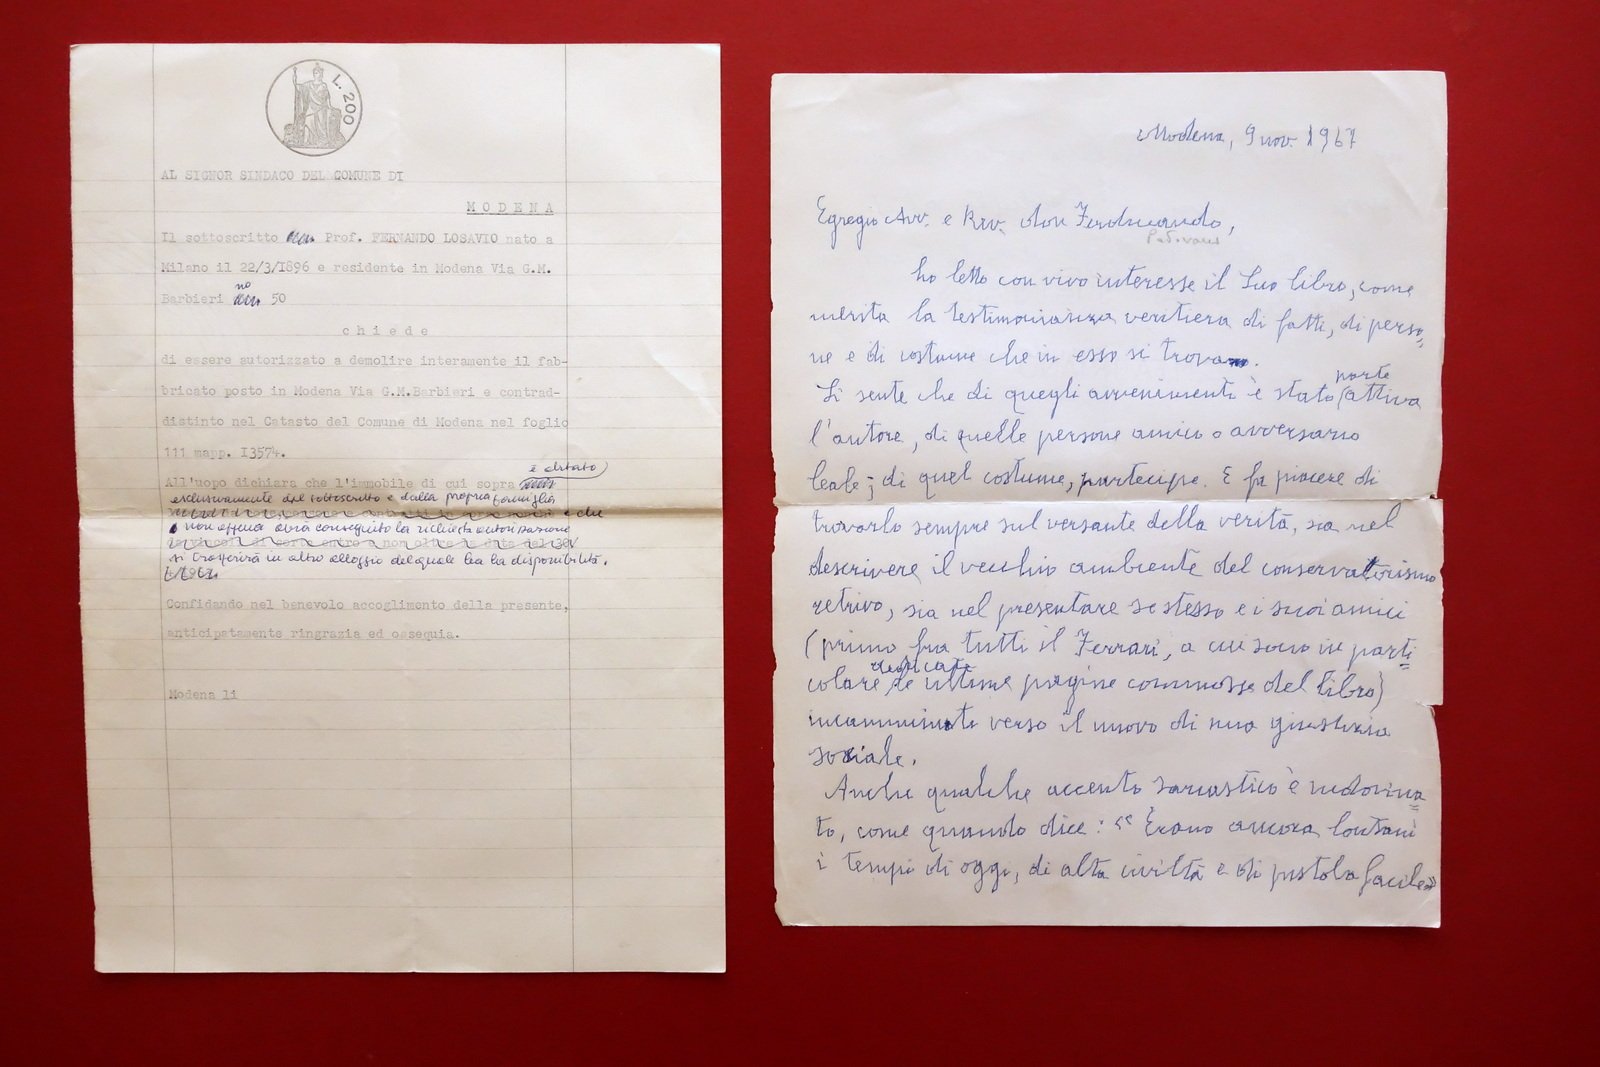 L. 200
AL SIGNOR SINDACO DEL COMUNE DI
MODENA
Il sottoscritto Prof. FERNANDO LOSAVIO nato a
Milano il 22/3/1896 e residente in Modena Via G.M.
no
Barbieri 50
chiede
di essere autorizzato a demolire interamente il fab-
bricato posto in Modena Via G.M.Barbieri e contrad-
distinto nel Catasto del Comune di Modena nel foglio
111 mapp. 13574.
è abitato
All'uopo dichiara che l'immobile di cui sopra
esclusivamente dal sottoscritto e dalla propria famiglia
e che
non appena avrà conseguito la richiesta autorizzazione
si trasferirà in altro alloggio del quale ha la disponibilità.
Confidando nel benevolo accoglimento della presente,
anticipatamente ringrazia ed ossequia.
Modena li
Modena, 9 nov. 1967
Egregio Avv. e Rev. don Ferdinando,
Padovani
ho letto con vivo interesse il Suo libro, come
merita la testimonianza veritiera di fatti, di perso=
ne e di costume che in esso si trova.
parte
Si sente che di quegli avvenimenti è stato attiva
l'autore, di quelle persone amico o avversario
leale; di quel costume, partecipe. E fa piacere di
trovarlo sempre sul versante della verità, sia nel
descrivere il vecchio ambiente del conservatorismo
retrivo, sia nel presentare se stesso e i suoi amici
(primo fra tutti il Ferrari, a cui sono in parti=
dedicate
colare le ultime pagine commosse del libro)
incamminati verso il nuovo di una giustizia
sociale.
Anche qualche accento sarcastico è indovina=
to, come quando dice: "Erano ancora lontani
i tempi di oggi, di alta civiltà e di pistola facile»